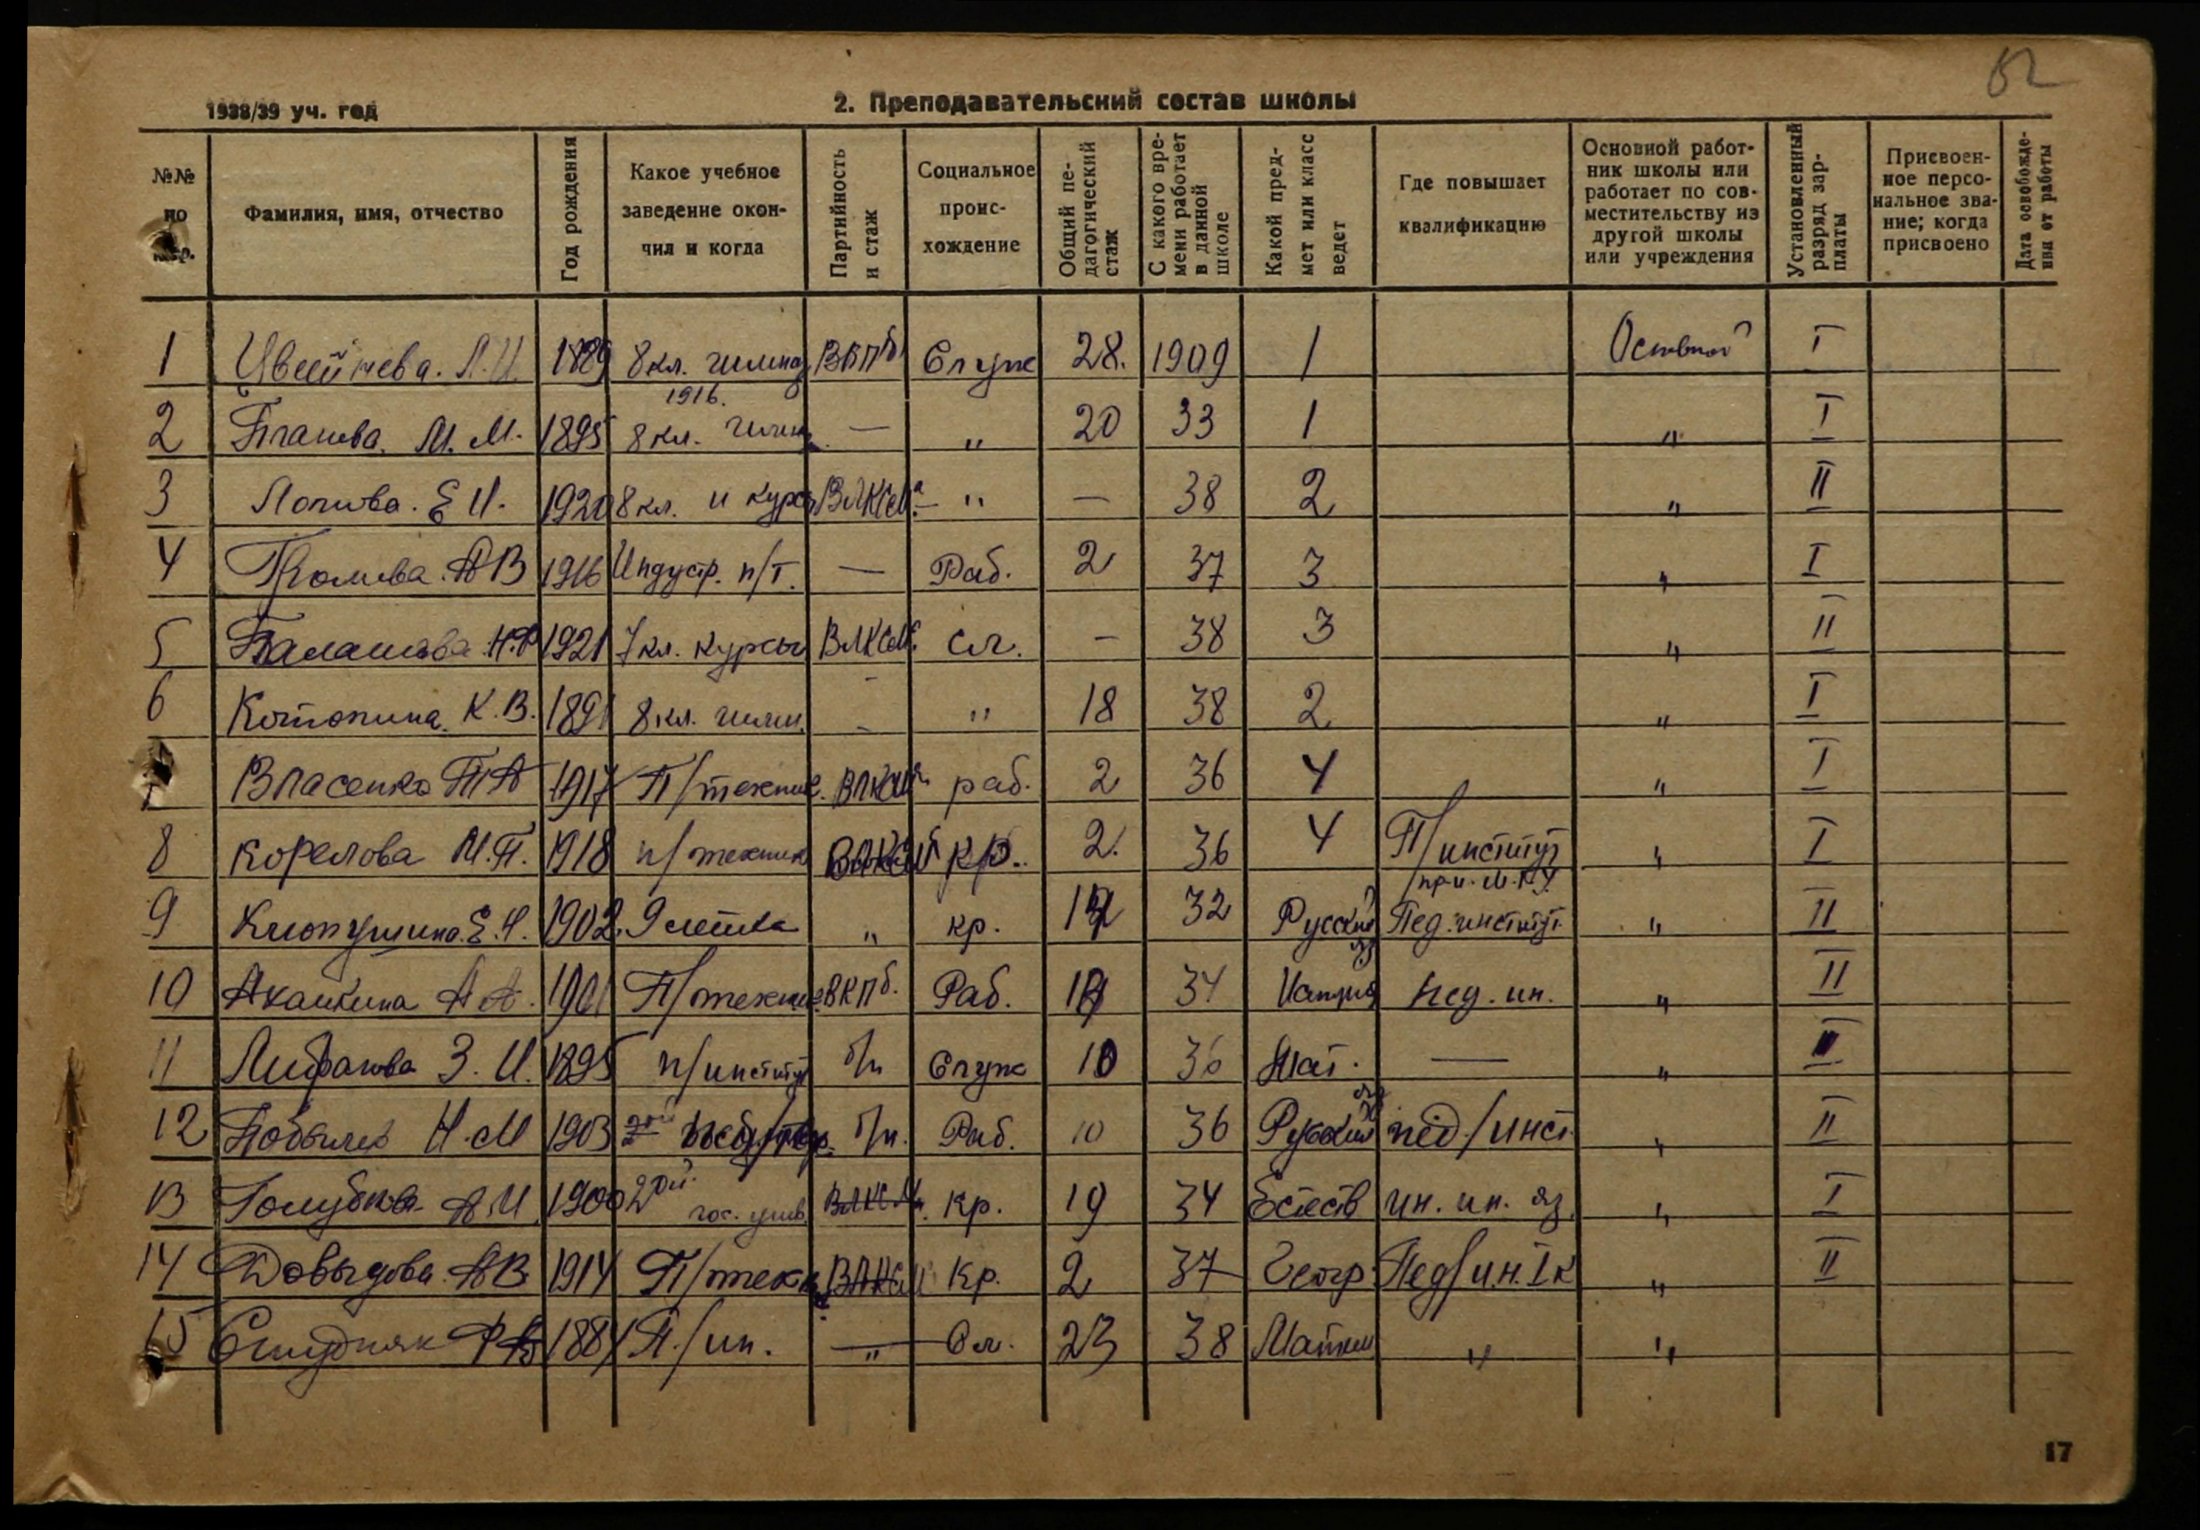 62
1938/39 уч. год
2. Преподавательский состав школы
№№ по пор. Фамилия, имя, отчество Год рождения Какое учебное заведение окончил и когда Партийность и стаж Социальное происхождение Общий педагогический стаж С какого времени работает в данной школе Какой предмет или класс ведет Где повышает квалификацию Основной работник школы или работает по совместительству из другой школы или учреждения Установленный разряд зарплаты Присвоенное персональное звание; когда присвоено Дата освобождения от работы
1 Л.И. 1889 8 кл. гимназ ВКПб Служ 28. 1909 1 Основной I
1916.
2 М. М. 1895 8 кл. гимн — " 20 33 1 " I
3 Попова. Е И. 1920 8 кл. и курсы ВЛКСМ " — 38 2 " II
4 АВ 1916 Индустр. п/т. — Раб. 2 37 3 " I
5 Балашова Н.Ф 1921 7 кл. курсы ВЛКСМ сл. — 38 3 " II
6 Котопина К.В. 1891 8 кл. гимн. - " 18 38 2 " I
7 Власенко ТА 1917 П/техник. ВЛКСМ раб. 2 36 4 " I
8 Корелова М.П. 1918 п/техник ВЛКСМ кр. 2. 36 4 П/институт " I
при М.Г.У.
9 Е.Н. 1902 9 летка " кр. 32 Русский яз Пед. институт " II
10 Акашкина А А. 1901 П/техник ВКПб. Раб. 34 Истрия пед. ин. " II
11 З. И. 1895 п/институт б/п Служ 10 36 Мат. — " II
12 Н. М 1903 2ой б/п. Раб. 10 36 Русский яз пед/инст. " II
13 Голубева АИ. 1900 2ой гос. унив. ВЛКСМ. Кр. 19 34 Естеств ин. ин. яз. " I
14 Довыдова АВ 1914 П/техник ВЛКСМ Кр. 2 37 Геогр. Пед/ин. I к " II
15 1884 П./ин. — " Сл. 23 38 Матем " "
17